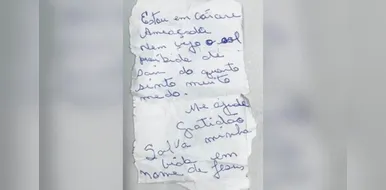 Estou em carcare
Ameaçada
Nem vejo o sol
proibida de
sair do quarto
sinto muito
medo.
Me ajude
Gratidão
Salva minha
vida em
Nome de Jesus